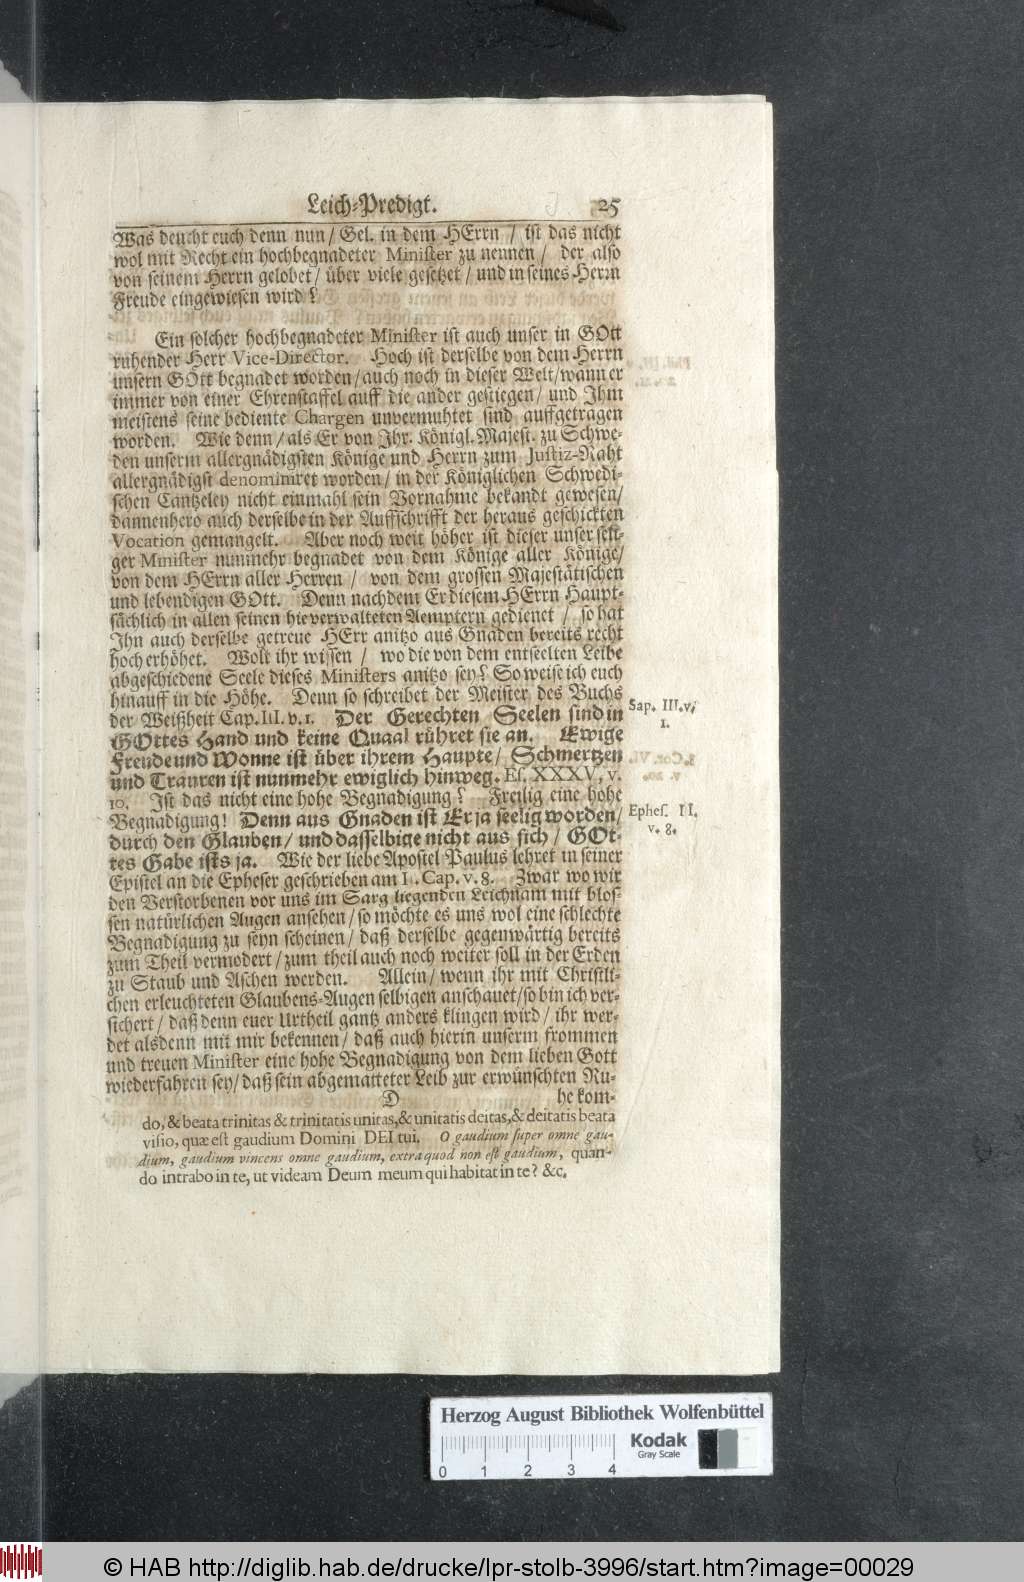 Leich-Predigt. 25
Was deucht euch denn nun / Gel. in dem HErrn / ist das nicht
wol mit Recht ein hochbegnadeter Minister zu nennen / der also
von seinem Herrn gelobet / über viele gesetzet / und in seines Herrn
Freude eingewiesen wird?
Ein solcher hochbegnadeter Minister ist auch unser in GOtt
ruhender Herr Vice-Director. Hoch ist derselbe von dem Herrn
unsern GOtt begnadet worden / auch noch in dieser Welt / wann er
immer von einer Ehrenstaffel auff die ander gestiegen / und Ihm
meistens seine bediente Chargen unvermuhtet sind auffgetragen
worden. Wie denn / als Er von Ihr. Königl. Majest. zu Schwe-
den unserm allergnädigsten Könige und Herrn zum Justiz-Raht
allergnädigst denominiret worden / in der Königlichen Schwedi-
schen Cantzeley nicht einmahl sein Vornahme bekandt gewesen /
dannenhero auch derselbe in der Auffschrifft der heraus geschickten
Vocation gemangelt. Aber noch weit höher ist dieser unser seli-
ger Minister nunmehr begnadet von dem Könige aller Könige /
von dem HErrn aller Herren / von dem grossen Majestätischen
und lebendigen GOtt. Denn nachdem Er diesem HErrn Haupt-
sächlich in allen seinen hie verwalteten Aemptern gedienet / so hat
Ihn auch derselbe getreue HErr anitzo aus Gnaden bereits recht
hoch erhöhet. Wolt ihr wissen / wo die von dem entseelten Leibe
abgeschiedene Seele dieses Ministers anitzo sey? So weise ich euch
hinauff in die Höhe. Denn so schreibet der Meister des Buchs
der Weißheit Cap. III. v. 1. Der Gerechten Seelen sind in
GOttes Hand und keine Quaal rühret sie an. Ewige
Freude und Wonne ist über ihrem Haupte / Schmertzen
und Trauren ist nunmehr ewiglich hinweg. Es. XXXV, v.
10. Ist das nicht eine hohe Begnadigung? Freilig eine hohe
Begnadigung! Denn aus Gnaden ist Er ja seelig worden /
durch den Glauben / und dasselbige nicht aus sich / GOt-
tes Gabe ists ja. Wie der liebe Apostel Paulus lehret in seiner
Epistel an die Epheser geschrieben am I. Cap. v. 8. Zwar wo wir
den Verstorbenen vor uns im Sarg liegenden Leichnam mit blos-
sen natürlichen Augen ansehen / so möchte es uns wol eine schlechte
Begnadigung zu seyn scheinen / daß derselbe gegenwärtig bereits
zum Theil vermodert / zum theil auch noch weiter soll in der Erden
zu Staub und Aschen werden. Allein / wenn ihr mit Christli-
chen erleuchteten Glaubens-Augen selbigen anschauet / so bin ich ver-
sichert / daß denn euer Urtheil gantz anders klingen wird / ihr wer-
det alsdenn mit mir bekennen / daß auch hierin unserm frommen
und treuen Minister eine hohe Begnadigung von dem lieben Gott
wiederfahren sey / daß sein abgematteter Leib zur erwünschten Ru-
D he kom-
do, & beata trinitas & trinitatis unitas, & unitatis deitas, & deitatis beata
visio, quæ est gaudium Domini DEI tui. O gaudium super omne gau-
dium, gaudium vincens omne gaudium, extra quod non est gaudium, quan-
do intrabo in te, ut videam Deum meum qui habitat in te? &c.
Sap. III. v.
1.
Ephes. II.
v. 8.
Herzog August Bibliothek Wolfenbüttel
Kodak
Gray Scale
0 1 2 3 4
© HAB http://diglib.hab.de/drucke/lpr-stolb-3996/start.htm?image=00029